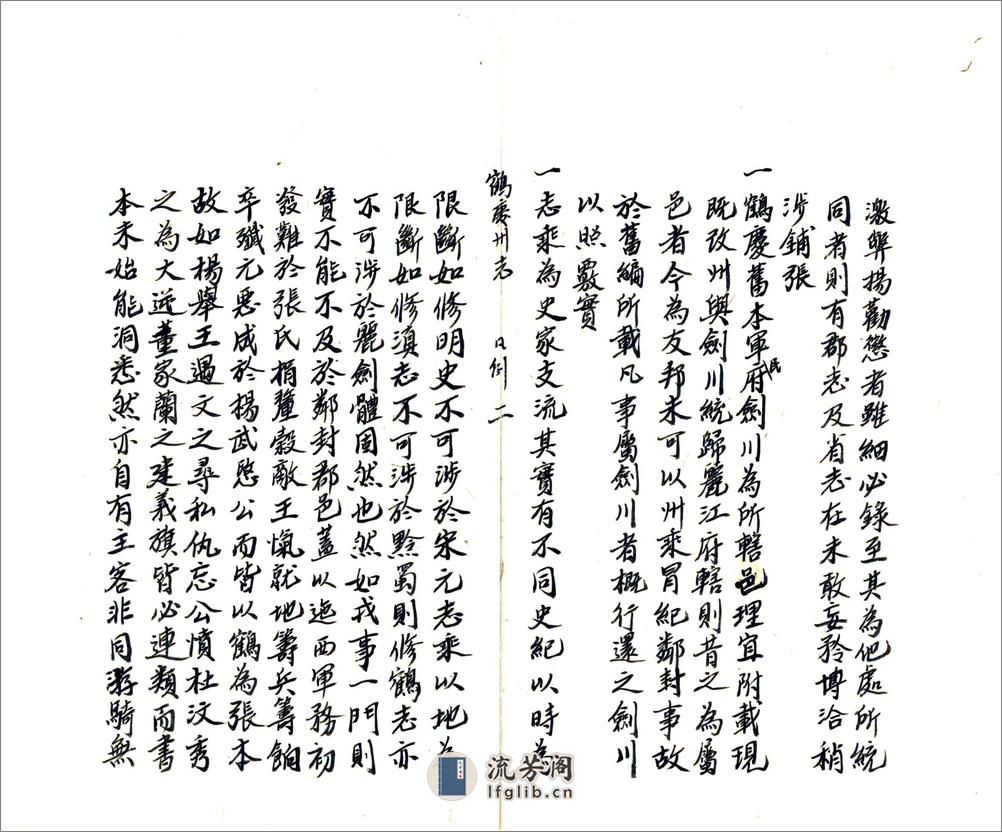 激弊揚勸懲者雖細必錄至其為他處所統
同者則有郡志及省志在未敢妄矜博洽稍
涉鋪張
一鶴慶舊本軍民府劍川為所轄邑理宜附載現
既改州與劍川統歸麗江府轄則昔之為屬
邑者今為友邦未可以州乘冒紀鄰封事故
於舊編所載凡事屬劍川者概行還之劍川
以照覈實
一志乘為史家支流其實有不同史紀以時為
鶴慶州志 凡例 二
限斷如修明史不可涉於宋元志乘以地為
限斷如修滇志不可涉於黔蜀則修鶴志亦
不可涉於麗劍體固然也然如戎事一門則
實不能不及於鄰封郡邑蓋以迤西軍務初
發難於張氏捐釐穀敵王愾就地籌兵籌餉
卒殲元惡成於楊武愍公而皆以鶴為張本
故如楊舉王過文之尋私仇忘公憤杜汶秀
之為大逆董家蘭之建義旗皆必連類而書
本末始能洞悉然亦自有主客非同游騎無
流芳阁
lfglib.cn